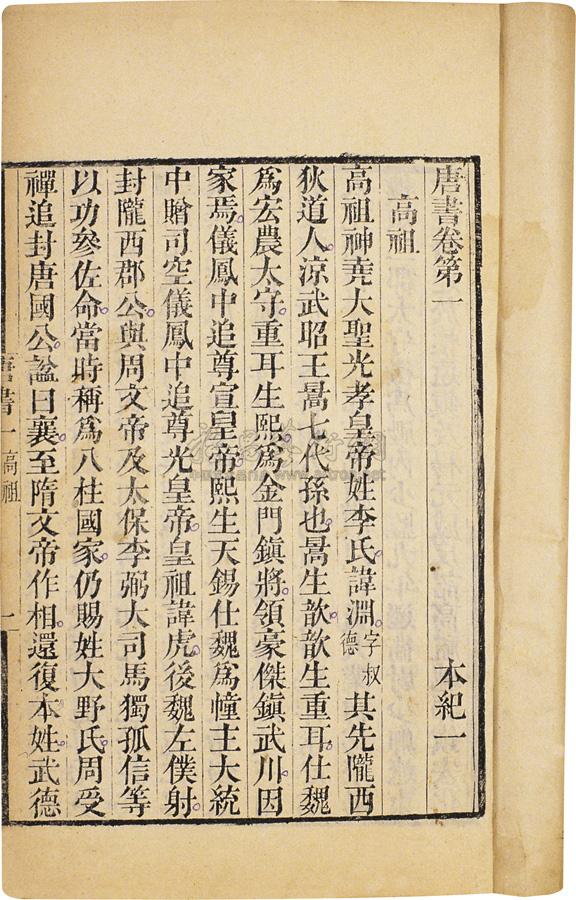 唐書卷第一 本紀一
高祖
高祖神堯大聖光孝皇帝姓李氏諱淵字叔德其先隴西
狄道人涼武昭王暠七代孫也暠生歆歆生重耳仕魏
爲宏農太守重耳生熙爲金門鎮將領豪傑鎮武川因
家焉儀鳳中追尊宣皇帝熙生天錫仕魏爲幢主大統
中贈司空儀鳳中追尊光皇帝皇祖諱虎後魏左僕射
封隴西郡公與周文帝及太保李弼大司馬獨孤信等
以功參佐命當時稱爲八柱國家仍賜姓大野氏周受
禪追封唐國公諡曰襄至隋文帝作相還復本姓武德
唐書一 高祖 一